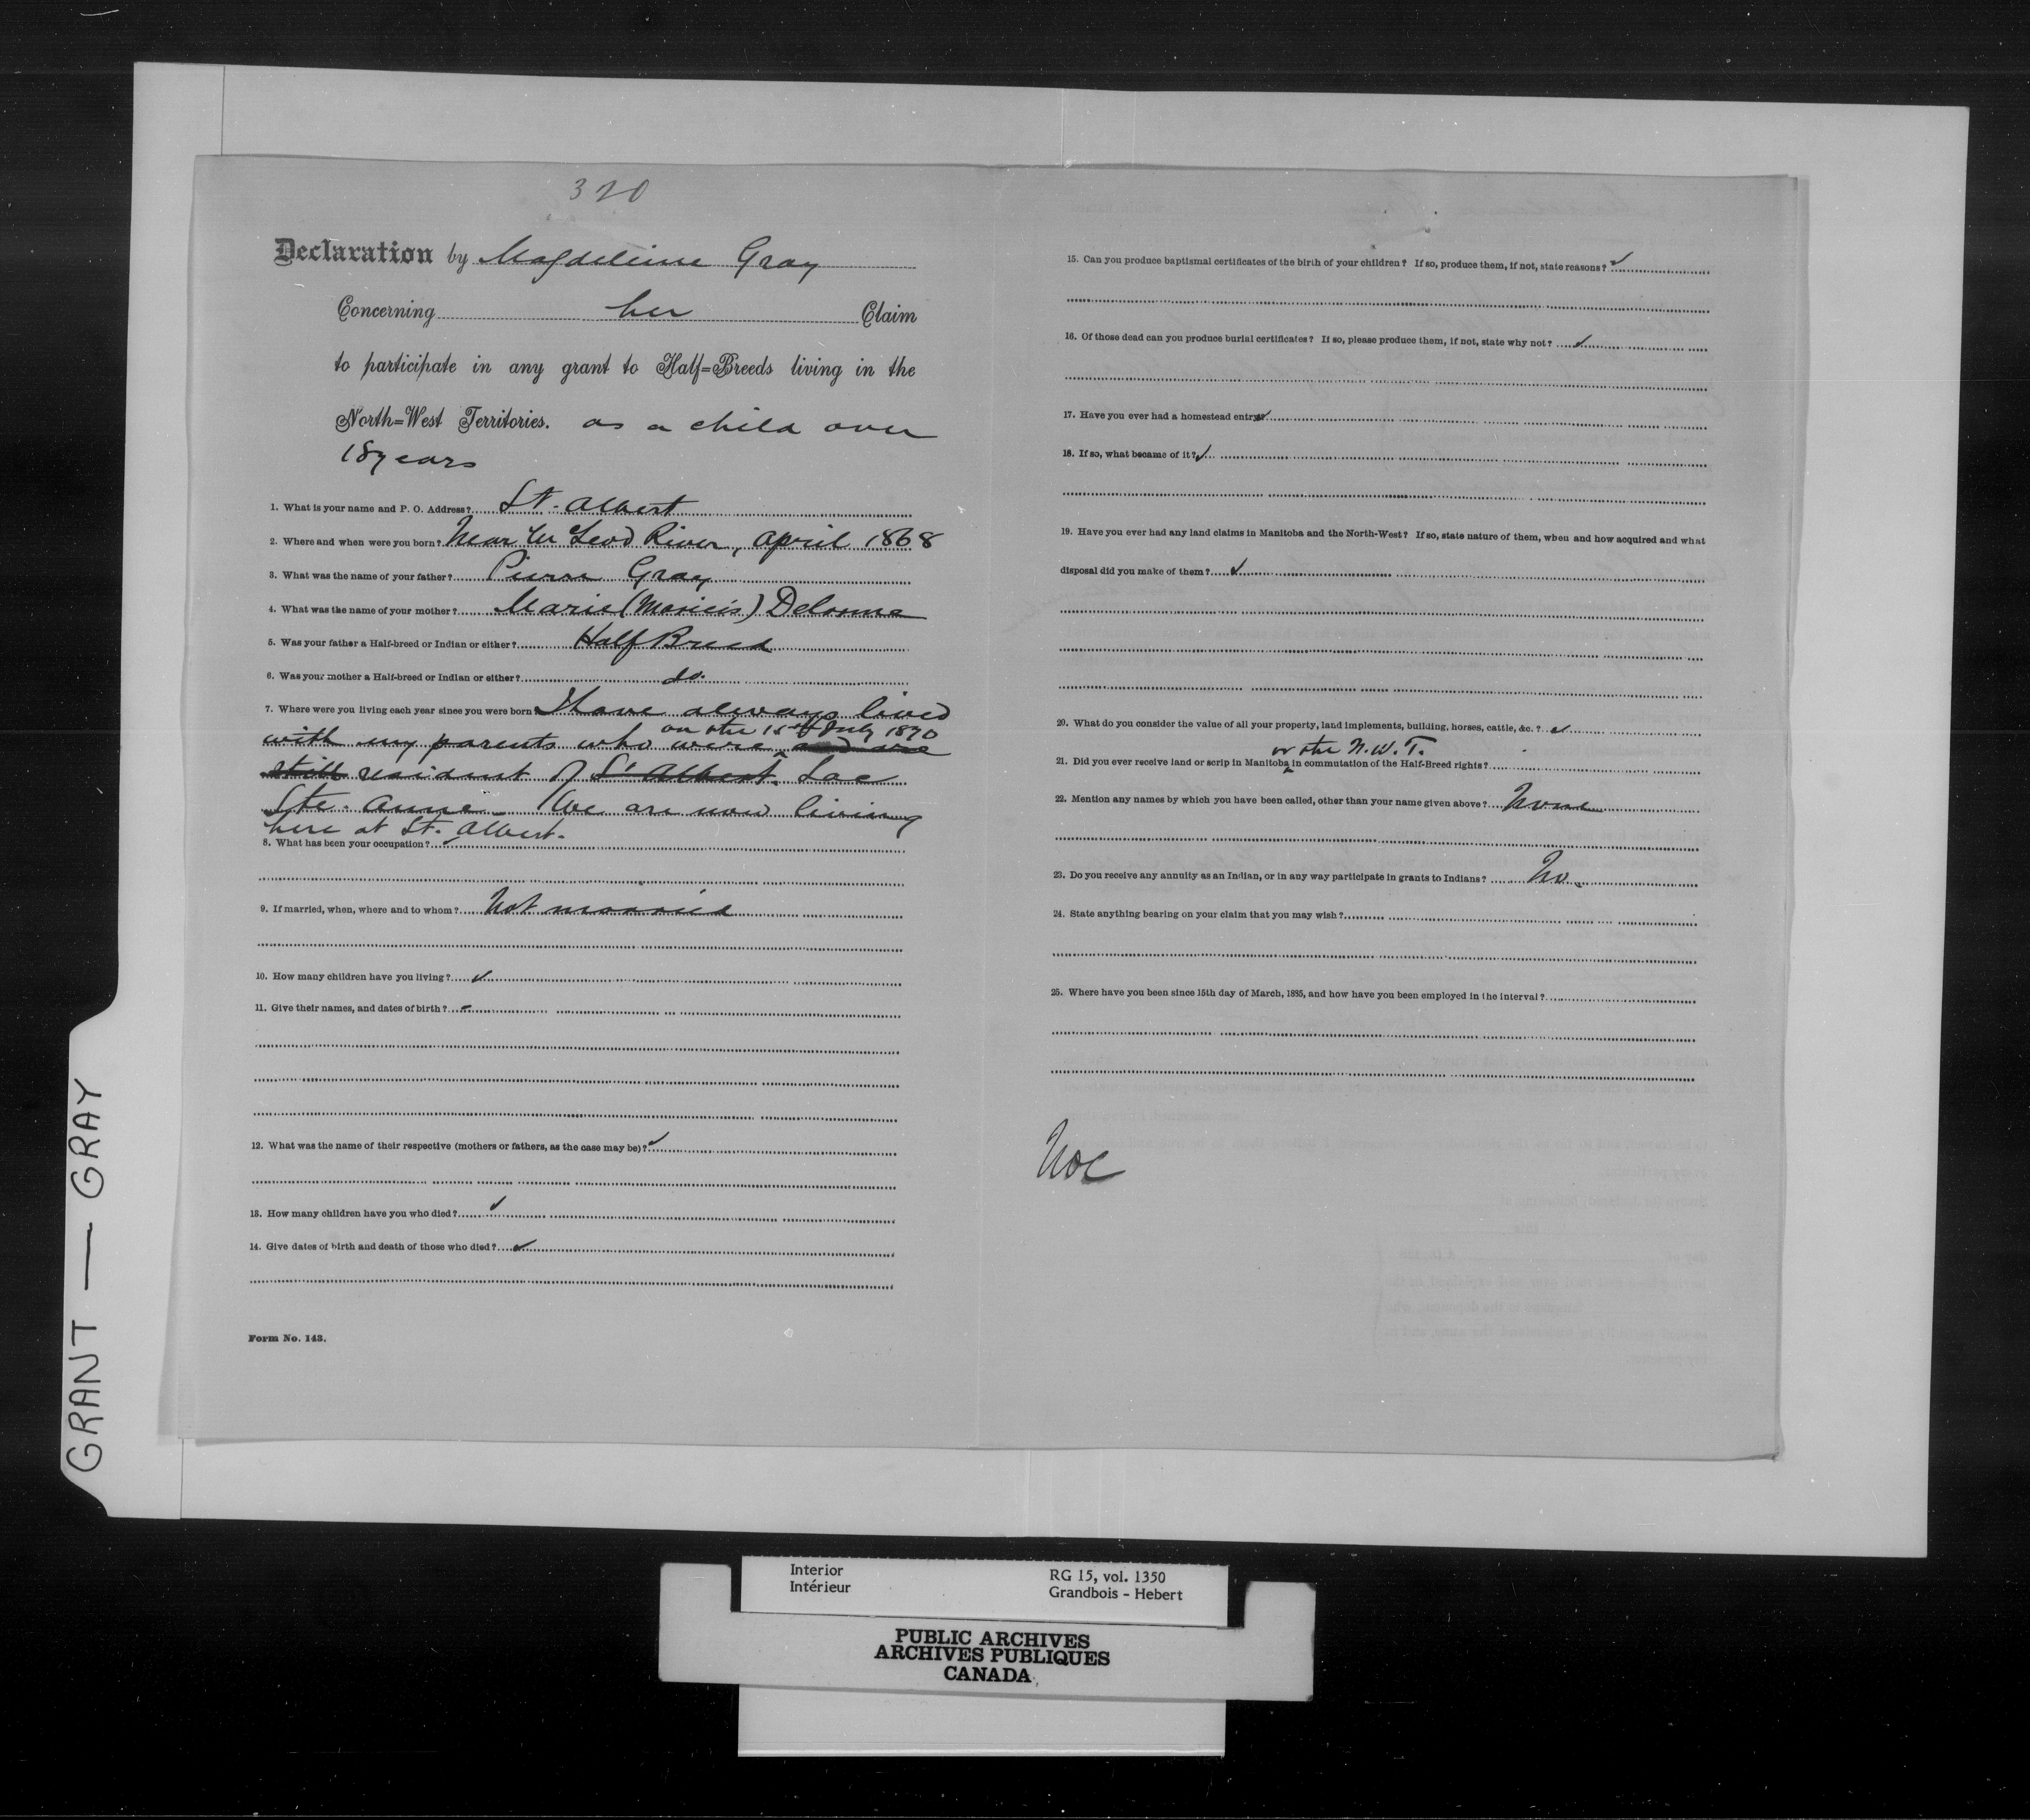 320
Declaration by Magdeleine Gray
Concerning her Claim
to participate in any grant to Half=Breeds living in the
North=West Territories. as a child over
18 years
1. What is your name and P. O. Address? St. Albert
2. Where and when were you born? Near McLeod River, April 1868
3. What was the name of your father? Pierre Gray
4. What was the name of your mother? Marie ( ) Delorme
5. Was your father a Half-breed or Indian or either? Half Breed
6. Was your mother a Half-breed or Indian or either? do.
7. Where were you living each year since you were born I have always lived
on the 15th July 1870
with my parents who were and are
still resident of St Albert. Lac
Ste. Anne. We are now living
here at St. Albert.
8. What has been your occupation? ✓
9. If married, when, where and to whom? Not married
10. How many children have you living? ✓
11. Give their names, and dates of birth?
12. What was the name of their respective (mothers or fathers, as the case may be)? ✓
13. How many children have you who died? ✓
14. Give dates of birth and death of those who died? ✓
Form No. 143.
15. Can you produce baptismal certificates of the birth of your children? If so, produce them, if not, state reasons? ✓
16. Of those dead can you produce burial certificates? If so, please produce them, if not, state why not? ✓
17. Have you ever had a homestead entry? ✓
18. If so, what became of it? ✓
19. Have you ever had any land claims in Manitoba and the North-West? If so, state nature of them, when and how acquired and what
disposal did you make of them? ✓
20. What do you consider the value of all your property, land implements, building, horses, cattle, &c.? ✓
or the N.W.T.
21. Did you ever receive land or scrip in Manitoba in commutation of the Half-Breed rights?
22. Mention any names by which you have been called, other than your name given above? None
23. Do you receive any annuity as an Indian, or in any way participate in grants to Indians? No.
24. State anything bearing on your claim that you may wish?
25. Where have you been since 15th day of March, 1885, and how have you been employed in the interval?
GRANT — GRAY
Interior
Intérieur
RG 15, vol. 1350
Grandbois - Hebert
PUBLIC ARCHIVES
ARCHIVES PUBLIQUES
CANADA